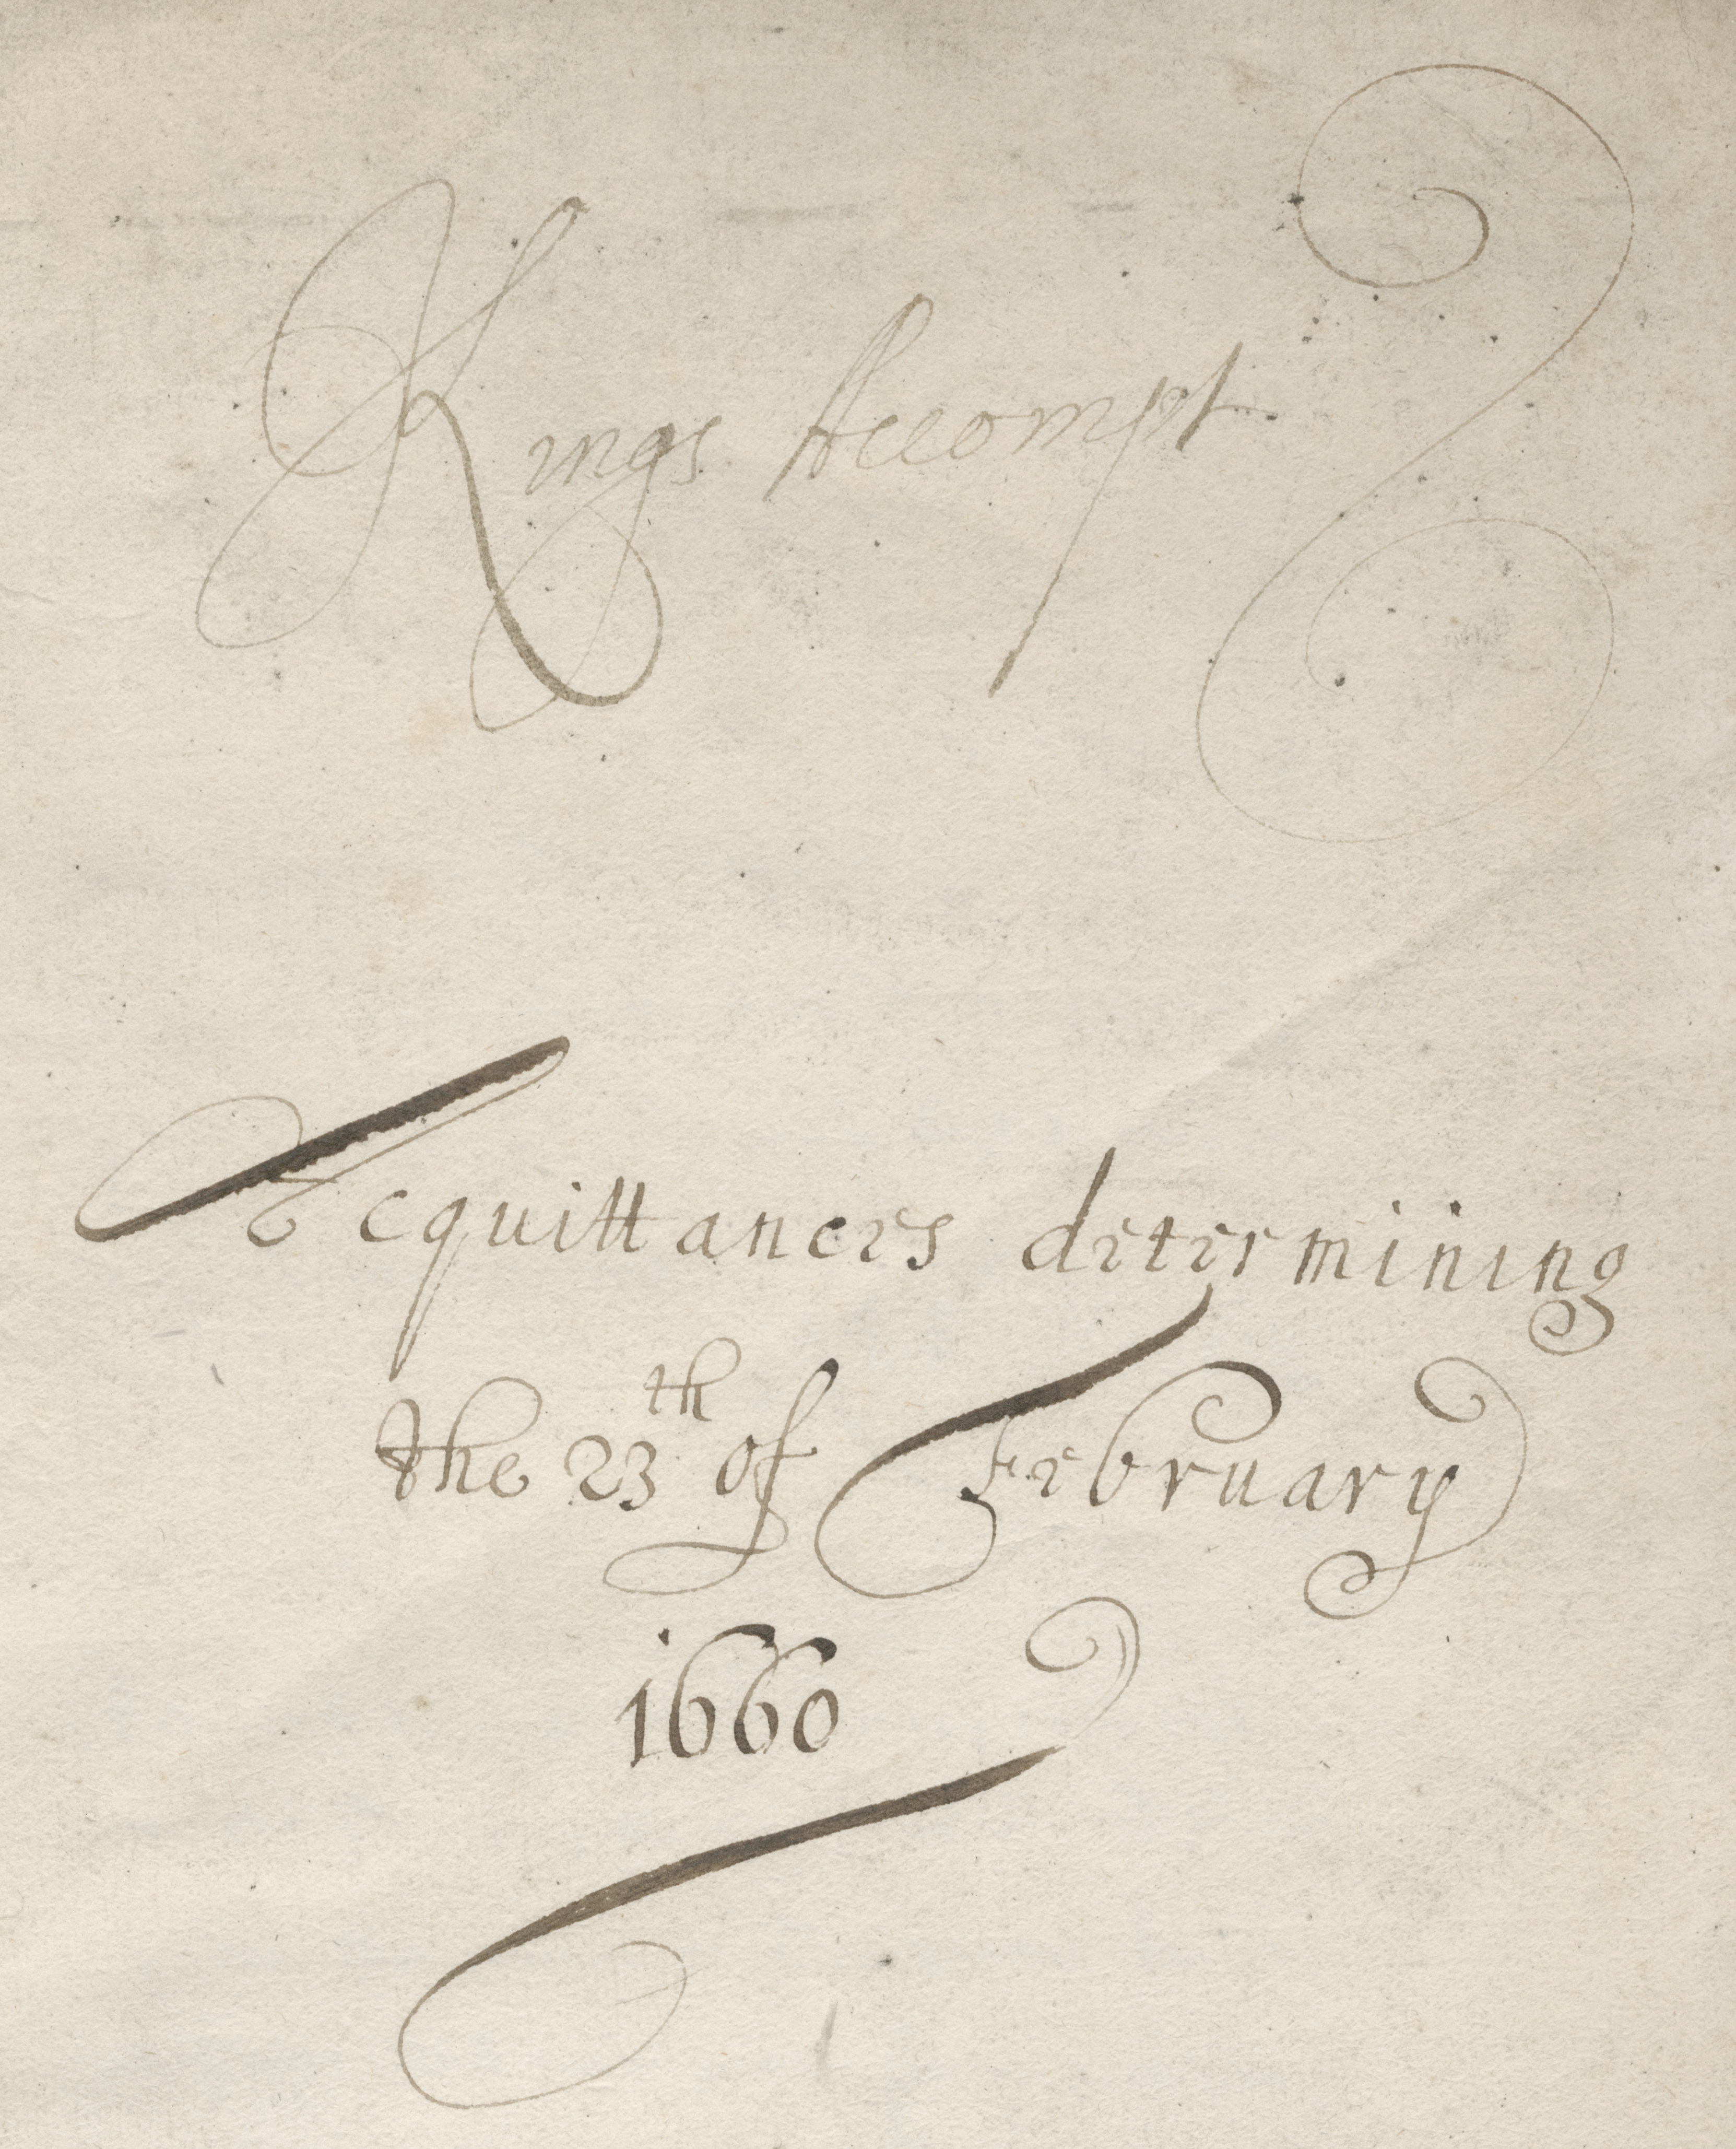 Kings Accompt
Acquittances determining
the 23th of February
1660